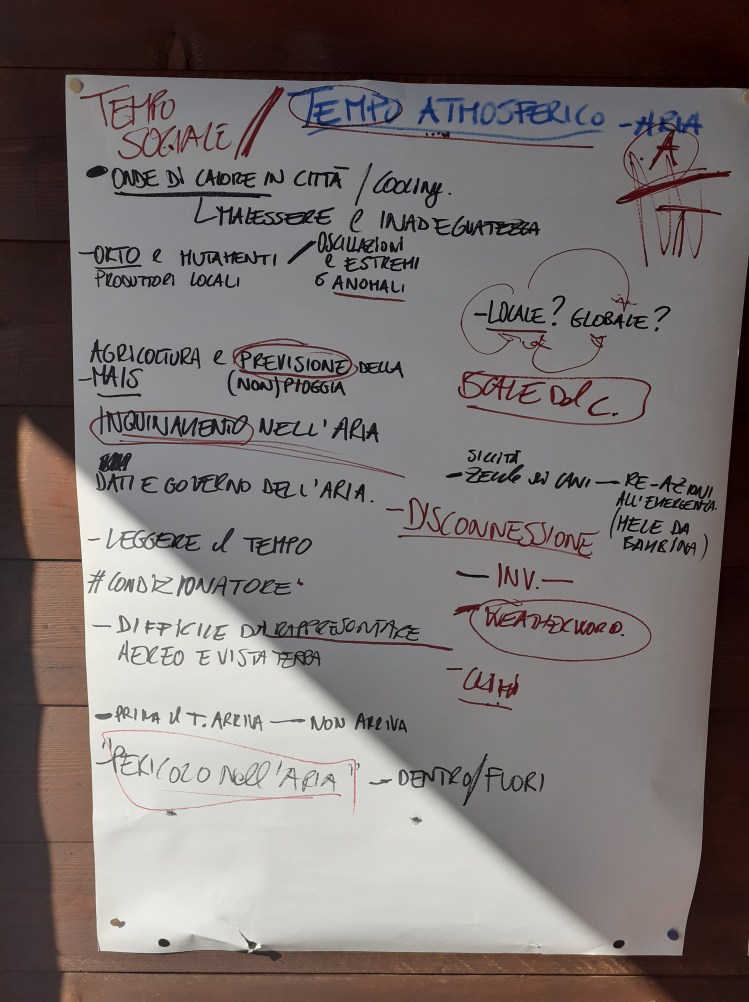 TEMPO
SOCIALE // TEMPO ATMOSFERICO - ARIA
A
T
• ONDE DI CALORE IN CITTÀ / COOLING.
MALESSERE E INADEGUATEZZA
- ORTO E MUTAMENTI / OSCILLAZIONI
PRODUTTORI LOCALI
E ESTREMI
ANOMALI
- LOCALE? GLOBALE?
AGRICOLTURA E PREVISIONE DELLA
- MAIS (NON) PIOGGIA
SCALE DEL C.
INQUINAMENTO NELL'ARIA
DATI E GOVERNO DELL'ARIA.
SICCITÀ
- RE-AZIONI
ALL'EMERGENZA
(MELE DA
BAMBINA)
- DISCONNESSIONE
- LEGGERE IL TEMPO
- INV. -
#CONDIZIONATORE
- WEATHER WORD.
- DIFFICILE DA RAPPRESENTARE
AEREO E VISTA TERRA
- PRIMA IL T. ARRIVA - NON ARRIVA
- "PERICOLO NELL'ARIA" - DENTRO/FUORI